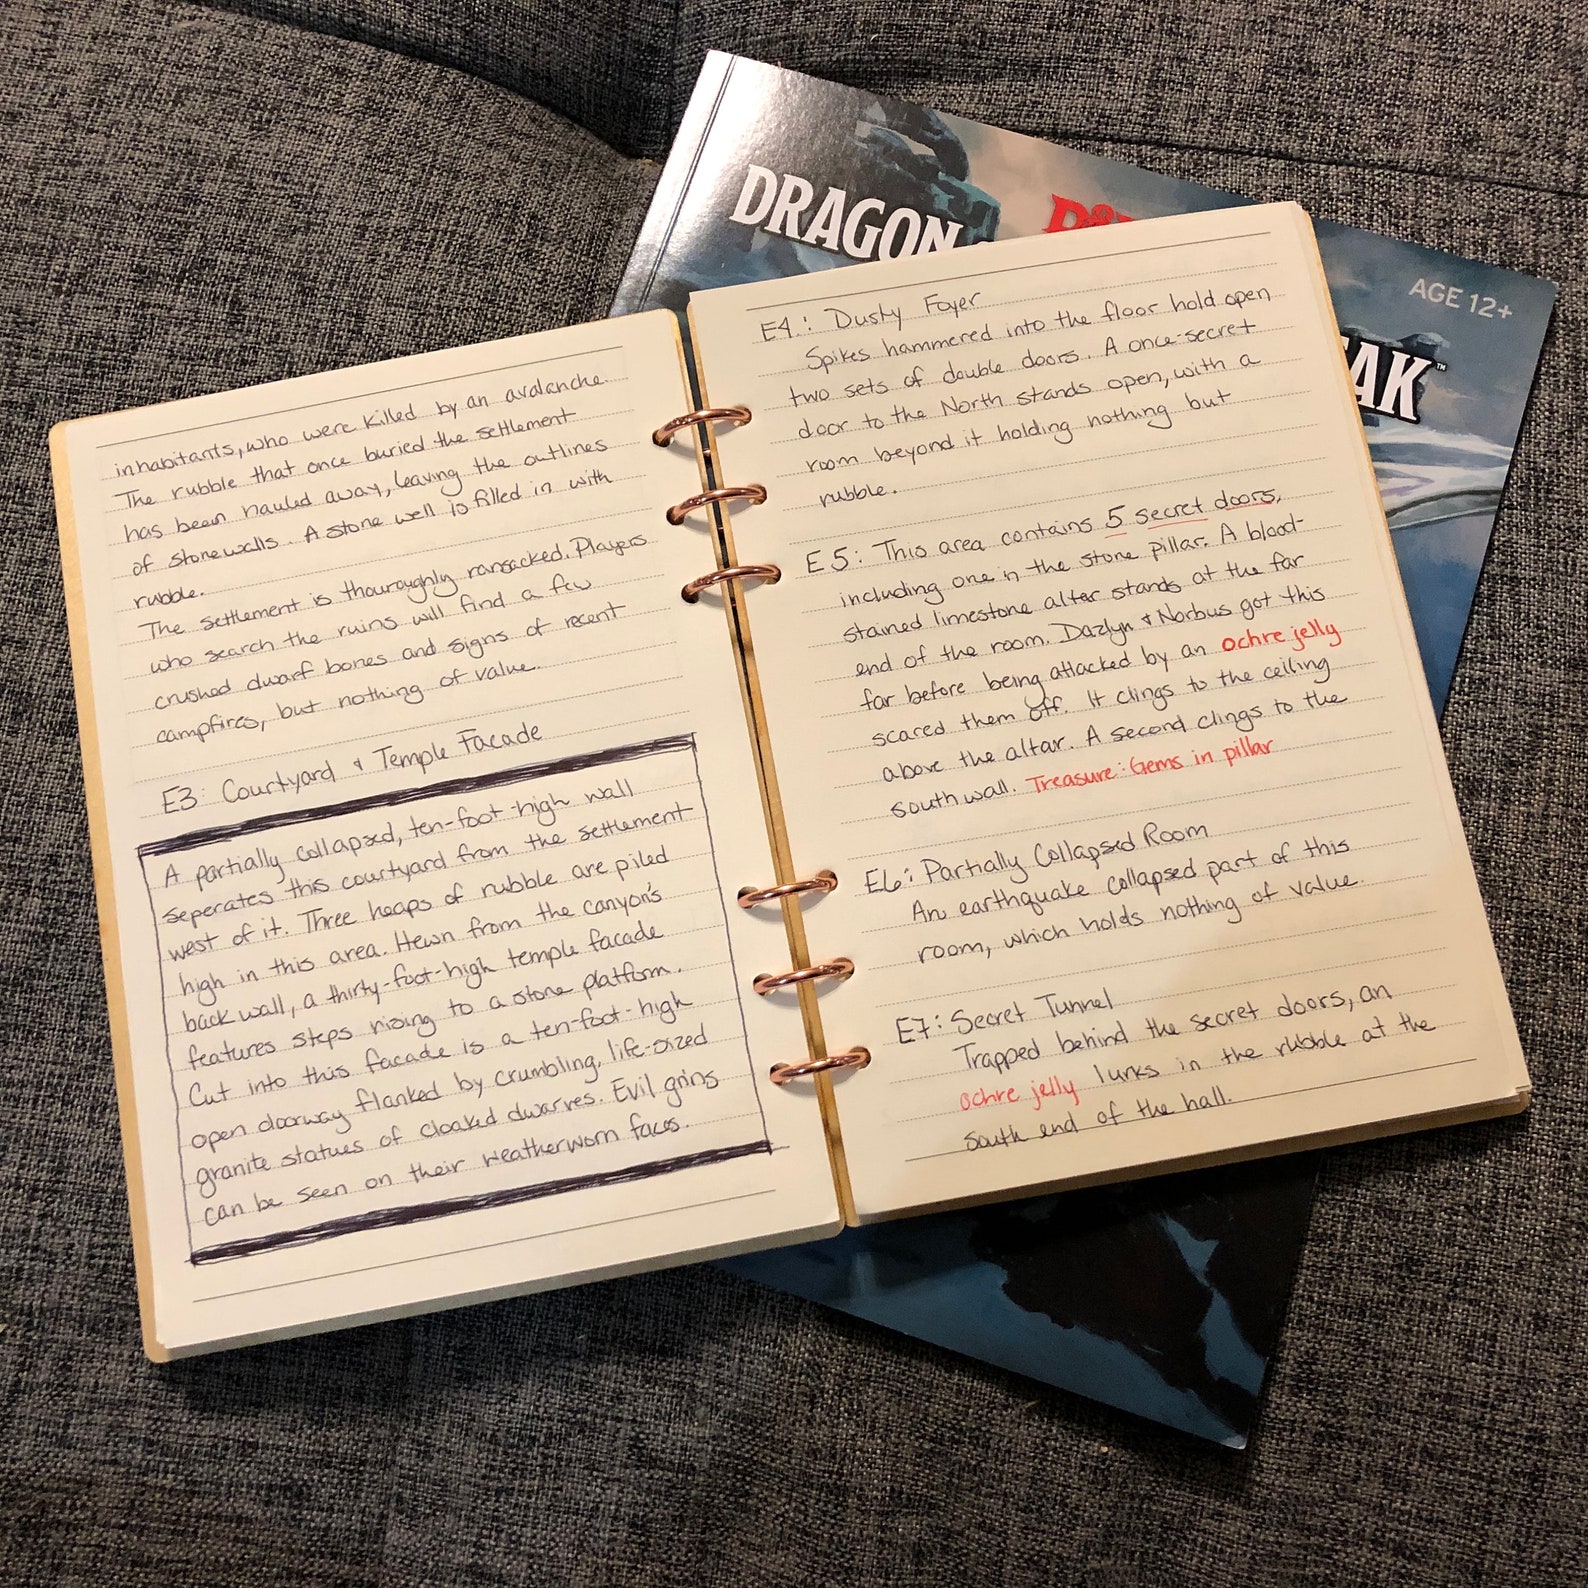 DRAGON
AGE 12+
AK™
inhabitants, who were killed by an avalanche.
The rubble that once buried the settlement
has been hauled away, leaving the outlines
of stone walls. A stone well is filled in with
rubble.
The settlement is thouroughly ransacked. Players
who search the ruins will find a few
crushed dwarf bones and signs of recent
campfires, but nothing of value.
E3: Courtyard & Temple Facade
A partially collapsed, ten-foot-high wall
seperates this courtyard from the settlement
west of it. Three heaps of rubble are piled
high in this area. Hewn from the canyon's
back wall, a thirty-foot-high temple facade
features steps rising to a stone platform.
Cut into this facade is a ten-foot-high
open doorway flanked by crumbling, life-sized
granite statues of cloaked dwarves. Evil grins
can be seen on their weatherworn faces.
E4.: Dusty Foyer
Spikes hammered into the floor hold open
two sets of double doors. A once-secret
door to the North stands open, with a
room beyond it holding nothing but
rubble.
E5: This area contains 5 secret doors,
including one in the stone pillar. A blood-
stained limestone alter stands at the far
end of the room. Dazlyn & Norbus got this
far before being attacked by an ochre jelly
scared them off. It clings to the ceiling
above the altar. A second clings to the
south wall. Treasure: Gems in pillar
E6: Partially Collapsed Room
An earthquake collapsed part of this
room, which holds nothing of value.
E7: Secret Tunnel
Trapped behind the secret doors, an
ochre jelly lurks in the rubble at the
south end of the hall.